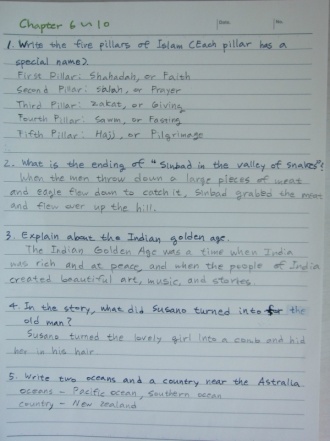 Chapter 6 ~ 10
Date No
1. Write the five pillars of Islam (Each pillar has a
special name).
First Pillar: Shahadah, or Faith
Second Pillar: Salah, or Prayer
Third Pillar: Zakat, or Giving
Fourth Pillar: Sawm, or Fasting
Fifth Pillar: Hajj, or Pilgrimage
2. What is the ending of "Sinbad in the valley of snakes"?
When the men throw down a large pieces of meat
and eagle flew down to catch it, Sinbad grabed the meat
and flew over up the hill.
3. Explain about the Indian golden age.
The Indian Golden Age was a time when India
was rich and at peace, and when the people of India
created beautiful art, music, and stories.
4. In the story, what did Susano turned into for the
old man?
Susano turned the lovely girl into a comb and hid
her in his hair.
5. Write two oceans and a country near the Astralia.
oceans - Pacific ocean, Southern ocean
country - New Zealand